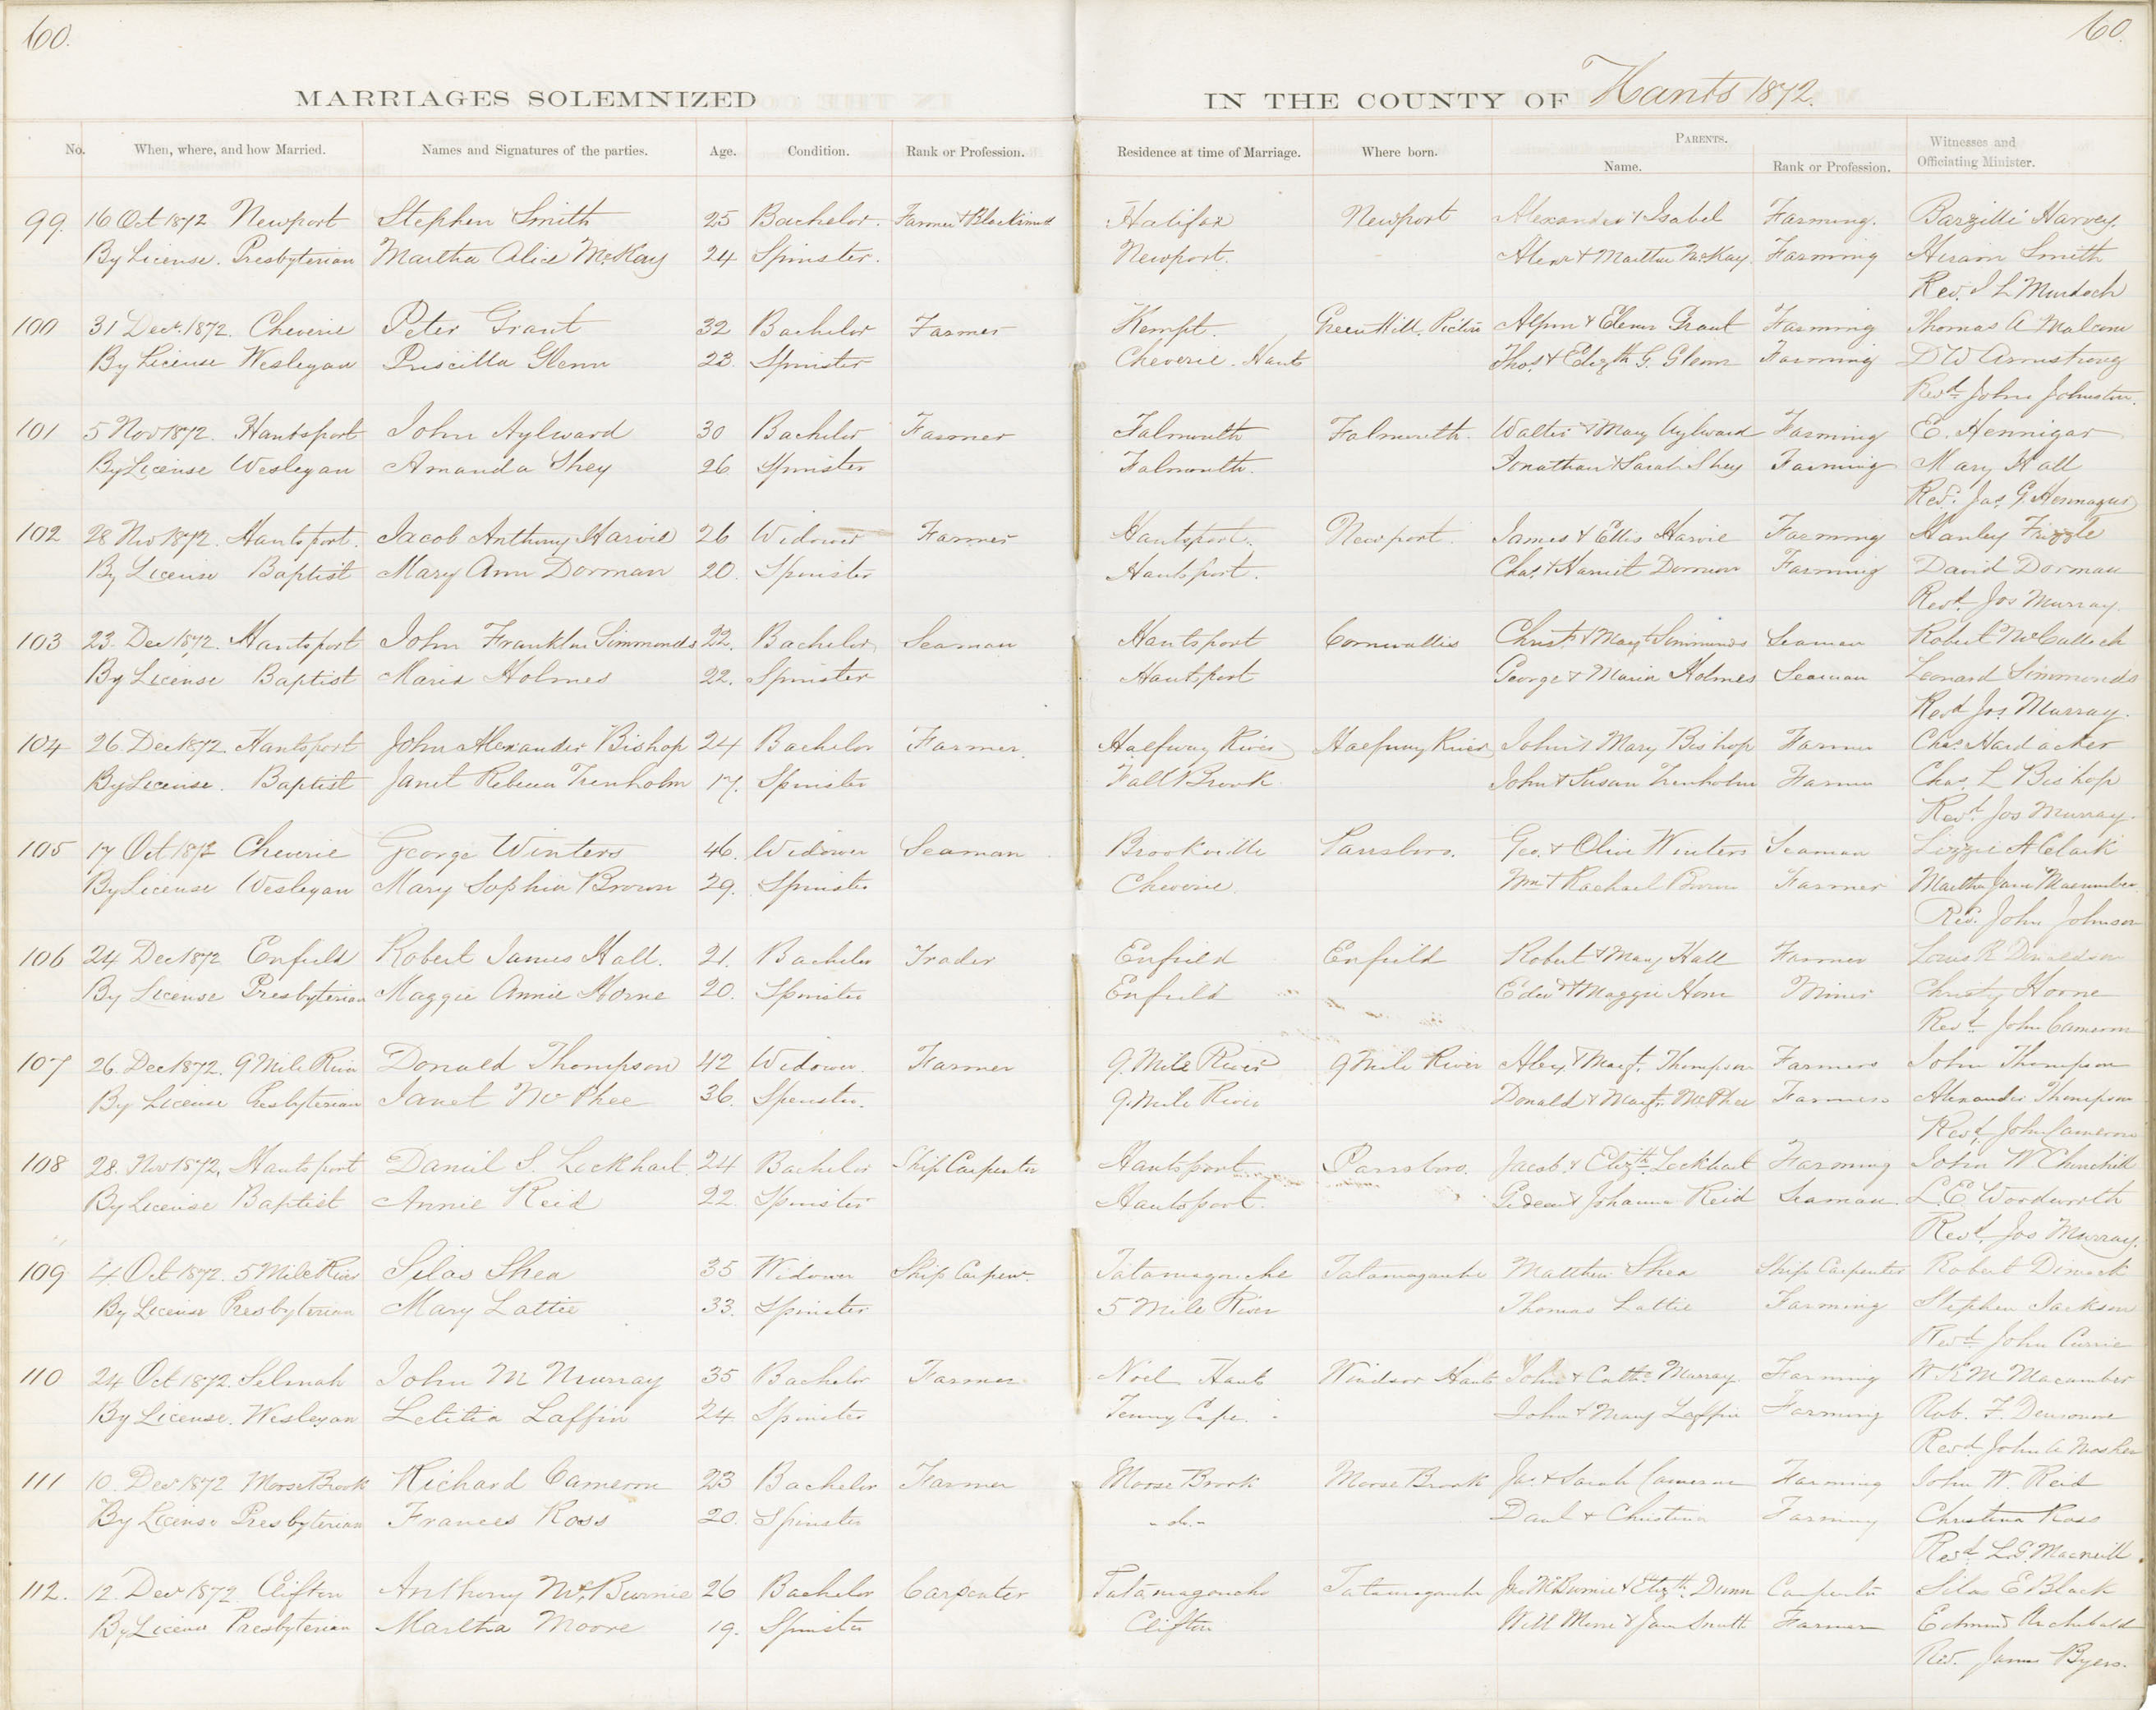 60.
60.
MARRIAGES SOLEMNIZED IN THE COUNTY OF Hants 1872.
No. When, where, and how Married. Names and Signatures of the parties. Age. Condition. Rank or Profession. Residence at time of Marriage. Where born. PARENTS. Name. Rank or Profession. Witnesses and Officiating Minister.
99. 16 Oct 1872 Newport Stephen Smith 25 Bachelor. Farmer & Blacksmith Halifax Newport Alexander & Isabel Farming. Barzilli Harvey.
By License. Presbyterian Martha Alice McKay 24 Spinster. Newport. Alexr & Martha McKay. Farming Hiram Smith
Rev. J L Murdoch
100 31 Dec. 1872. Cheverie Peter Grant 32 Bachelor Farmer Kempt. Green Hill, Pictou Alpin & Elenor Grant Farming Thomas A Malcom
By License Wesleyan Priscilla Glenn 23. Spinster Cheverie. Hants Thos. & Elizth G. Glenn Farming D W Armstrong
Revd. John Johnston.
101 5 Nov 1872. Hantsport John Aylward 30 Bachelor Farmer Falmouth Falmouth. Walter & Mary Aylward Farming E. Hennigar
By License Wesleyan Amanda Shey 26 Spinster Falmouth. Jonathan & Sarah Shey Farming Mary Hall
Rev. Jas. G. Hennagur
102 28 Nov 1872. Hantsport. Jacob Anthony Harvie 26 Widower Farmer Hantsport. Newport. James & Ellis Harvie Farming Hanley Frizzle
By License Baptist Mary Ann Dorman 20. Spinster Hantsport. Chas. & Harriet Dorman Farming David Dorman
Revd. Jos Murray.
103 23. Dec 1872. Hantsport John Franklin Simmonds 22. Bachelor Seaman Hantsport Cornwallis Christ. & Margt Simmonds Seaman Robert McCulloch
By License Baptist Maria Holmes 22. Spinster Hantsport George & Maria Holmes Seaman Leonard Simmonds
Revd Jos. Murray.
104 26. Dec 1872. Hantsport John Alexander Bishop 24 Bachelor Farmer. Halfway River Halfway River John & Mary Bishop Farmer Chas. Hardacker
By License. Baptist Janet Rebecca Trenholm 17. Spinster Fall Brook. John & Susan Trenholm Farmer Chas. L Bishop
Revd. Jos Murray.
105 17 Oct 1872 Cheverie George Winters 46. Widower Seaman Brookville Parrsboro. Geo. & Olive Winters Seaman Lizzie A Clark
By License Wesleyan Mary Sophia Brown 29. Spinster Cheverie. Wm & Rachael Brown Farmer Martha Jane Macumber.
Rev. John Johnson
106 24 Dec 1872 Enfield Robert James Hall. 21. Bachelor Trader Enfield Enfield Robert & Mary Hall Farmer Louis R Donaldson
By License Presbyterian Maggie Annie Horne 20. Spinster Enfield Edwd & Maggie Horne Miner Christy Horne
Revd. John Cameron
107 26. Dec 1872. 9 Mile River Donald Thompson 42 Widower. Farmer 9. Mile River 9 Mile River Alex. & Margt. Thompson Farmers John Thompson
By License Presbyterian Janet McPhee 36. Spinster. 9. Mile River Donald & Margt. McPhee Farmers Alexander Thompson
Revd. John Cameron
108 28. Nov 1872, Hantsport Daniel S. Lockhart. 24 Bachelor Ship Carpenter Hantsport Parrsboro. Jacob. & Elizth. Lockhart Farming John W Churchill
By License Baptist Annie Reid 22. Spinster Hantsport. Gideon & Johanna Reid Seaman. L. E. Woodworth
Revd. Jos Murray.
109 4. Oct 1872. 5 Mile River Silas Shea 35 Widower Ship Carpenr. Tatamagouche Tatamagouche Matthew Shea Ship Carpenter Robert Dimock
By License Presbyterian Mary Lattie 33. Spinster 5 Mile River Thomas Lattie Farming Stephen Jackson
Revd John Currie
110 24 Oct 1872. Selmah John M Murray 35 Bachelor Farmer. Noel Hants Windsor Hants John & Cathe. Murray. Farming W K M Macumber
By License. Wesleyan Letitia Laffin 24. Spinster Tenny Cape. John & Mary Laffin Farming Rob. F. Densmore
Revd. John A Mosher
111 10. Dec 1872 Moose Brook Richard Cameron 23 Bachelor Farmer Moose Brook Moose Brook Jas. & Sarah Cameron Farming John W. Reid
By License Presbyterian Frances Ross 20. Spinster - do. - Danl & Christina Farming Christina Ross
Revd. L. G. Macneill.
112. 12. Dec 1872. Clifton Anthony McBurnie 26 Bachelor Carpenter Tatamagouche Tatamagouche Jno McBurnie & Elizth. Dunn Carpenter Silas E Black
By License Presbyterian Martha Moore 19. Spinster Clifton Will Moore & Jane Smith Farmer Edmund Archibald
Rev. James Byers.